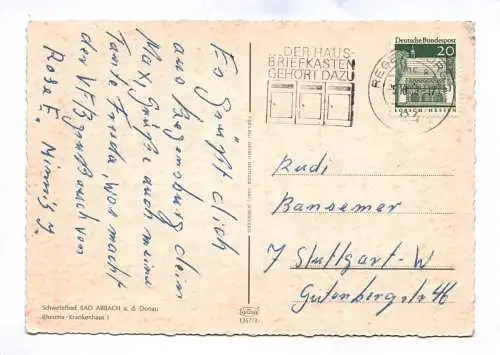 Es grüßt dich
aus Regensburg dein
Max, Grüße auch meine
Tante Frieda, was macht
der VFB, Gruß auch von
Rosa E.
Schwefelbad BAD ABBACH a. d. Donau
Rheuma-Krankenhaus I
...DER HAUS-
BRIEFKASTEN
GEHÖRT DAZU
Deutsche Bundespost
20
LORSCH / HESSEN
Rudi
Bansemer
7 Stuttgart-W
Gutenbergstr 46